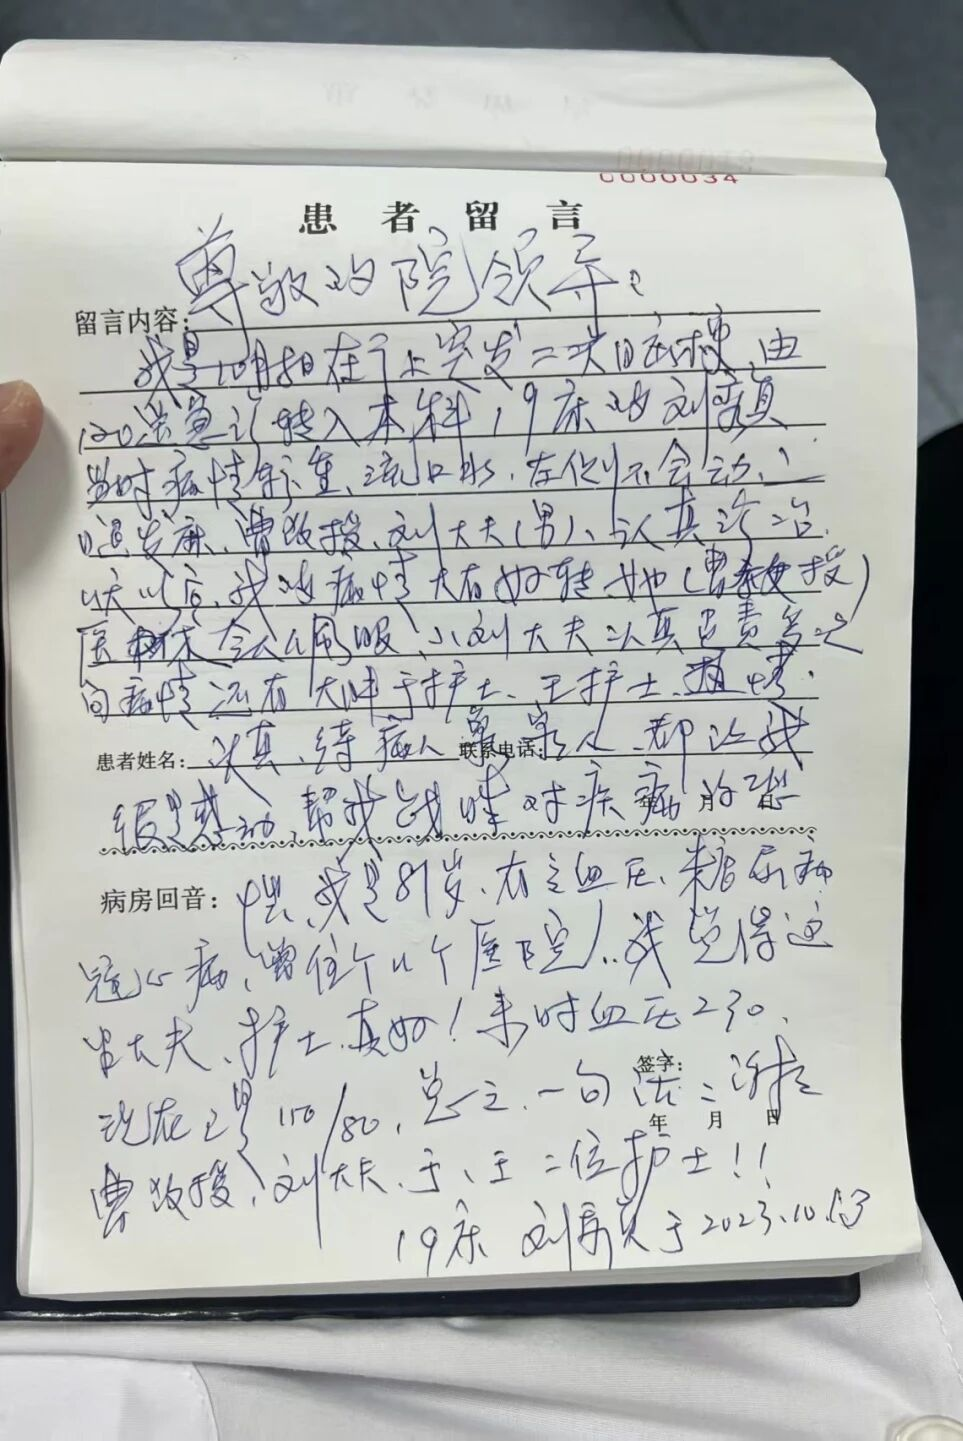 0000034
患者留言
尊敬的院领导：
留言内容：
我是10月 在 上突发二次 由
120送急诊转入本科，19床的刘 真
当时病情 重、流口水，左侧不会动、
发麻，曹教授、刘大夫（男）、认真诊治
以后，我的病情大有好转 她（曹教授）
医术令人佩服、小刘大夫认真负责多次
问病情还有大 于护士、王护士、热情、
患者姓名： 认真、待病人 亲人、都让我
联系电话：
很是感动，帮我战 对疾病的恐
年 月 日
病房回音： 惧，我是81岁、有高血压、糖尿病
冠心病、曾住个几个医院）..我觉得这
些大夫、护士、真好！来时血压230、
签字：
现在已是110/80，总之、一句话：谢谢
年 月 日
曹教授、刘大夫、于、王二位护士！！
19床 刘 真于2023.10.13